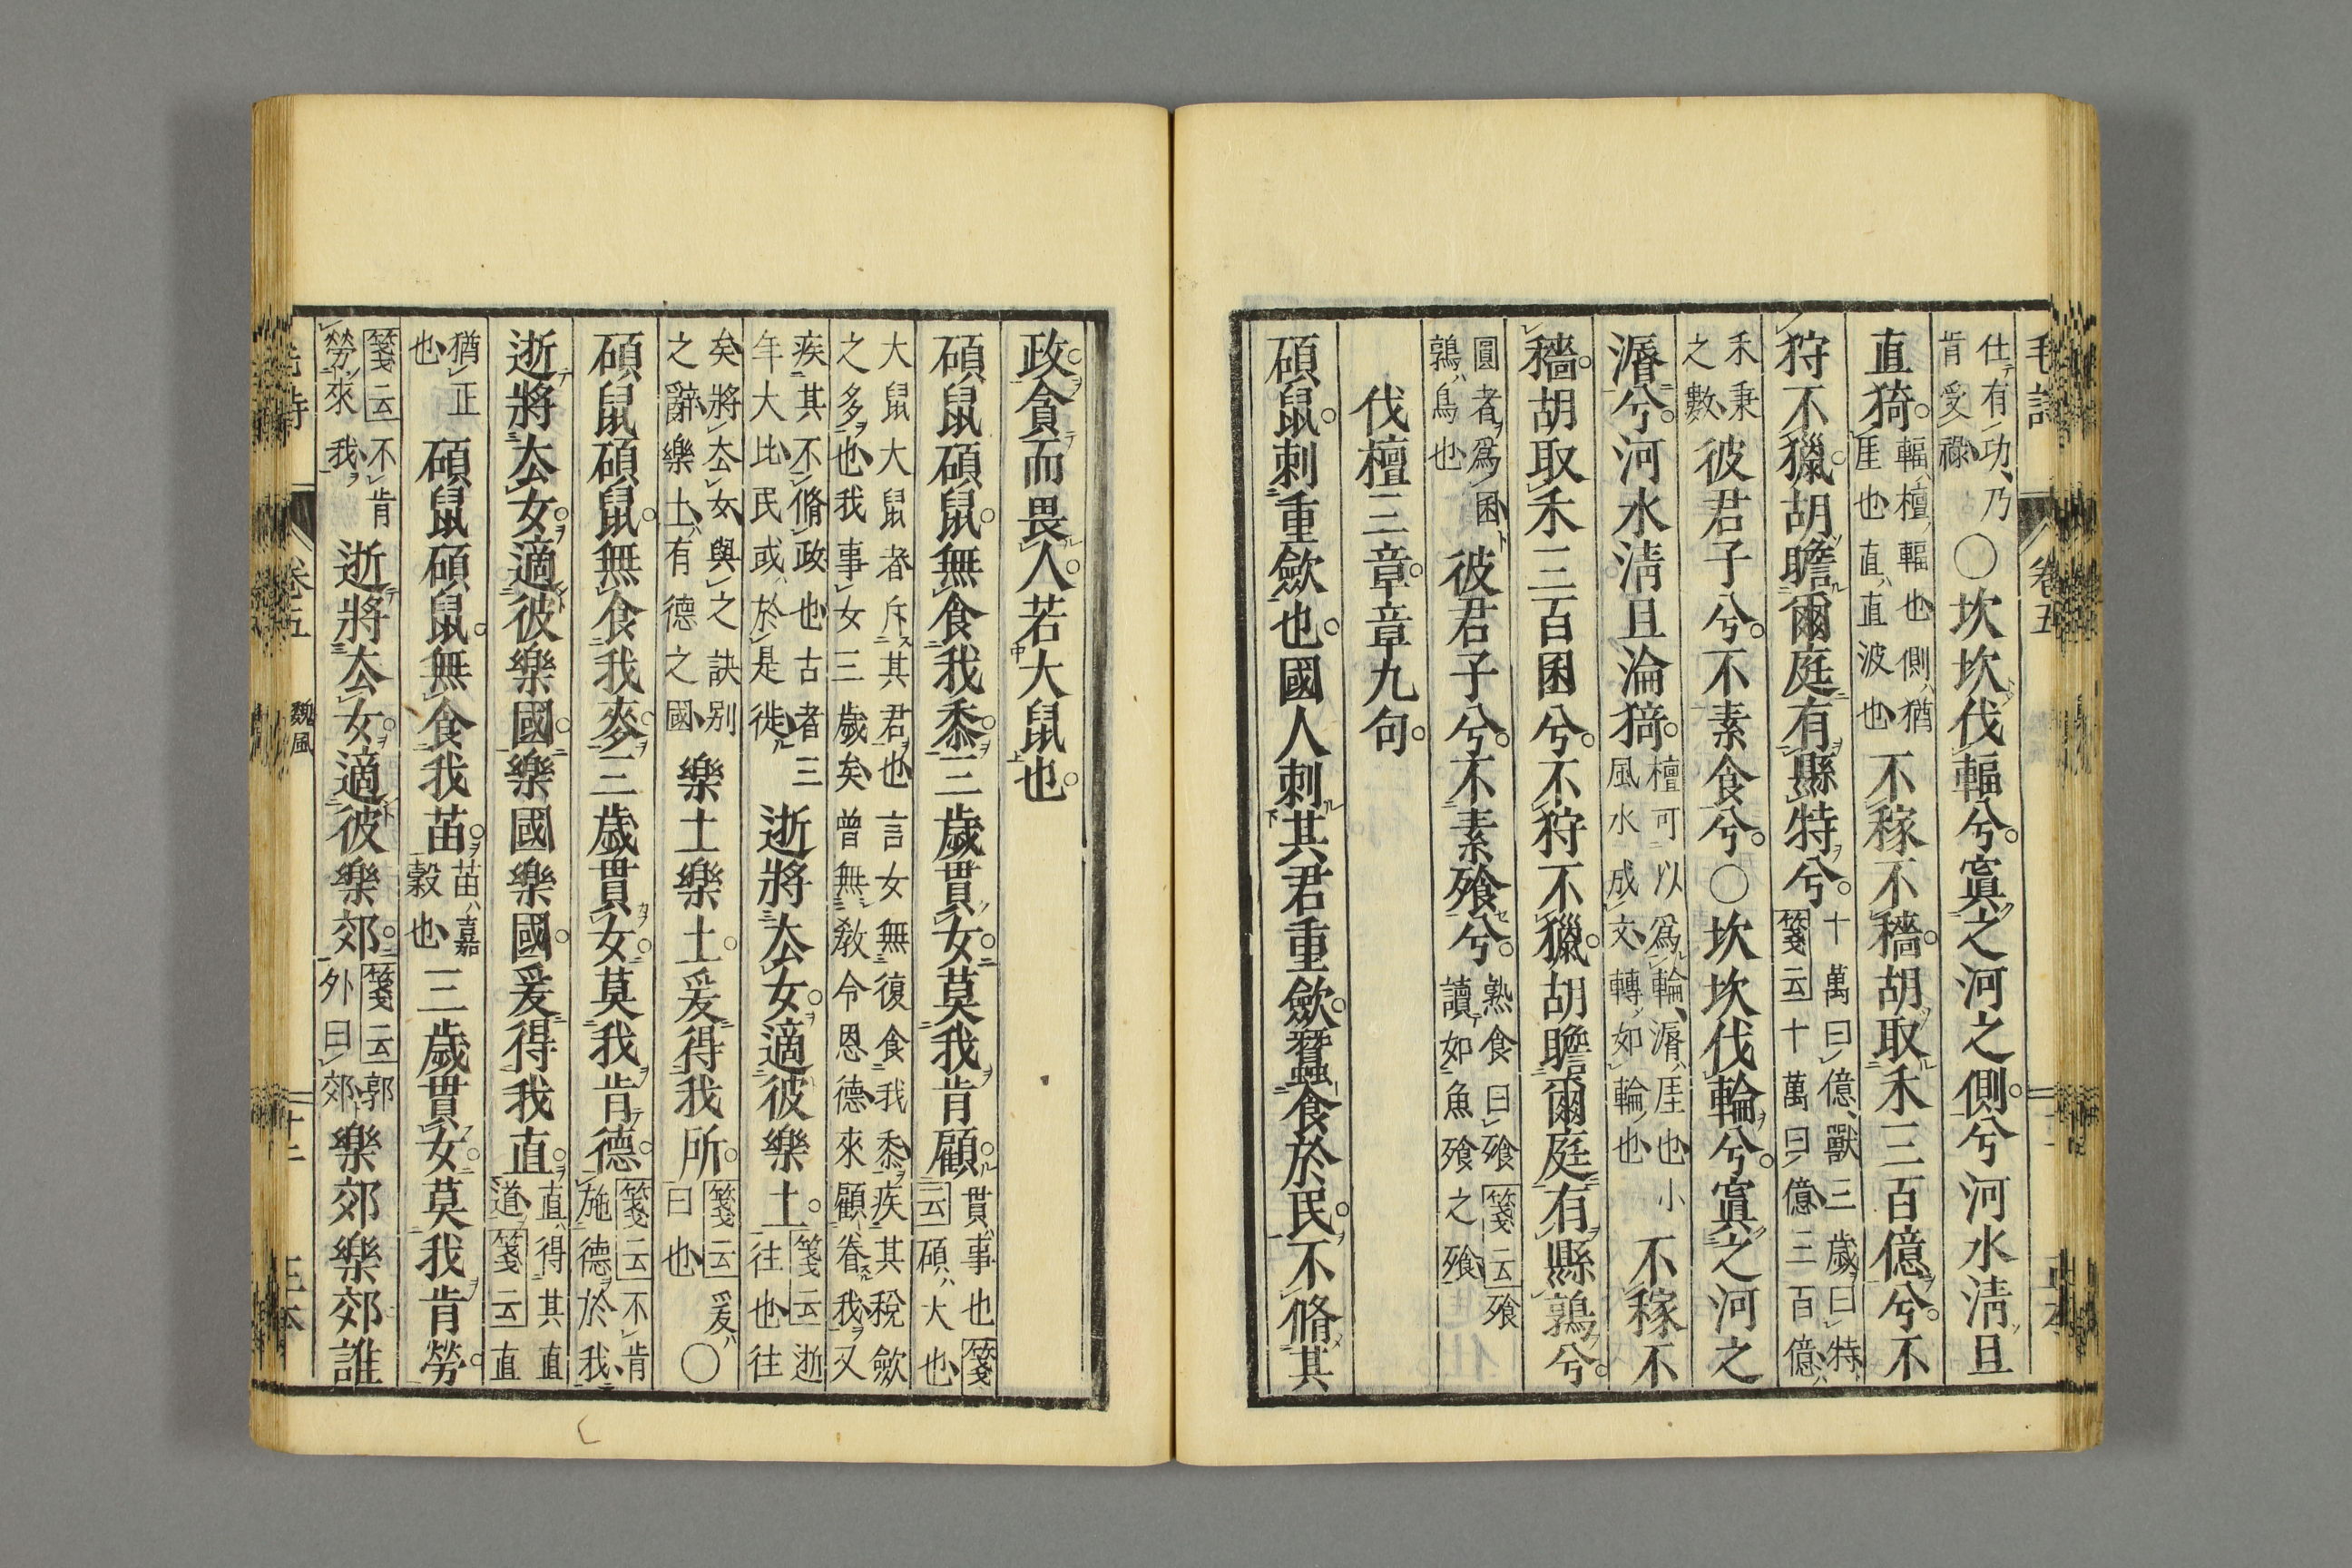 毛詩 卷五
仕有功乃肯受祿○坎坎伐輻兮寘之河之側兮河水淸且
直猗輻檀輻也側猶厓也直直波也不稼不穡胡取禾三百億兮不
狩不獵胡瞻爾庭有縣特兮十萬曰億獸三歲曰特箋云十萬曰億三百億
禾秉之數彼君子兮不素食兮○坎坎伐輪兮寘之河之
漘兮河水淸且淪猗檀可以爲輪漘厓也小風水成文轉如輪也不稼不
穡胡取禾三百囷兮不狩不獵胡瞻爾庭有縣鶉兮
圓者爲囷鶉鳥也彼君子兮不素飧兮熟食曰飧箋云飧讀如魚飧之飧
伐檀三章章九句
碩鼠刺重斂也國人刺其君重斂蠶食於民不脩其
政貪而畏人若大鼠也
碩鼠碩鼠無食我黍三歲貫女莫我肯顧貫事也箋云碩大也
大鼠大鼠者斥其君也言女無復食我黍疾其稅斂之多也我事女三歲矣曾無敎令恩德來顧眷我又
疾其不脩政也古者三年大比民或於是徙逝將厺女適彼樂土箋云逝往也往
矣將厺女與之訣別之辭樂土有德之國樂土樂土爰得我所箋云爰曰也○
碩鼠碩鼠無食我麥三歲貫女莫我肯德箋云不肯施德於我
逝將厺女適彼樂國樂國樂國爰得我直直得其直道箋云直
猶正也碩鼠碩鼠無食我苗苗嘉穀也三歲貫女莫我肯勞
箋云不肯勞來我逝將厺女適彼樂郊箋云郭外曰郊樂郊樂郊誰
毛詩 卷五 魏風 十二